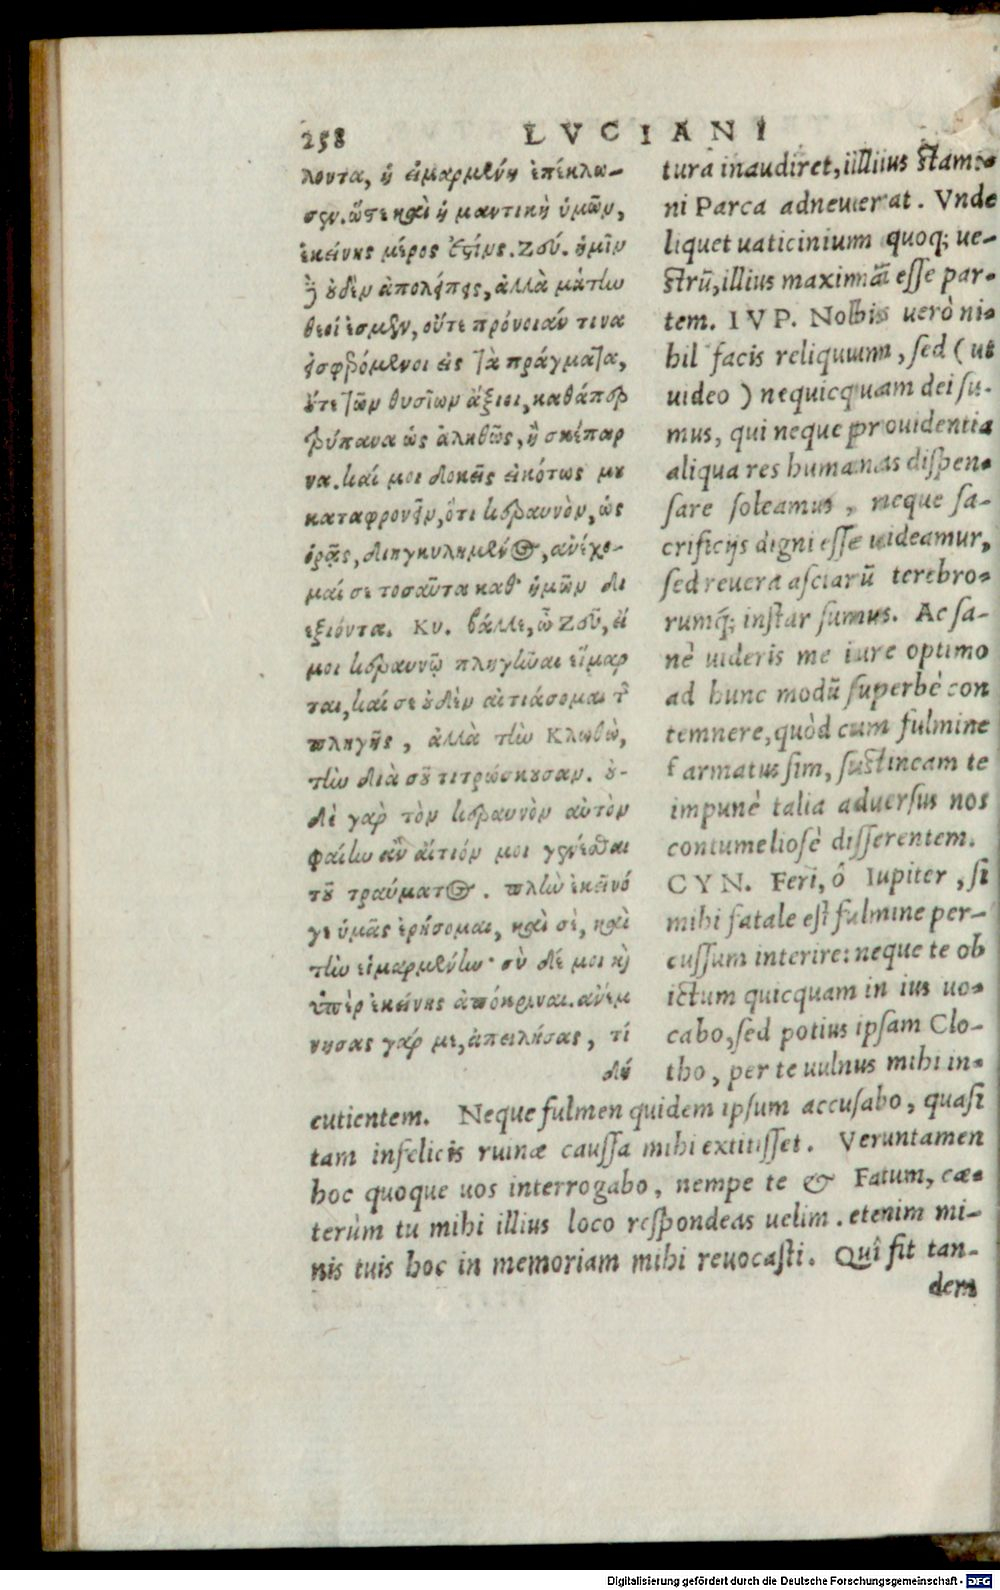 258 LVCIANI
λοντα, ἡ εἱμαρμένη ἐπέκλω-
σεν. ὥστε καὶ ἡ μαντικὴ ὑμῶν,
ἐκείνης μέρος ἐστίν. Ζεύ. ἡμῖν
ἢ οὐδὲν ἀπολείπεις, ἀλλὰ μάτην
θεοί ἐσμεν, οὔτε πρόνοιάν τινα
ἐσφερόμενοι εἰς τὰ πράγματα,
οὔτε τῶν θυσιῶν ἄξιοι, καθάπερ
τρύπανα ὡς ἀληθῶς, ἢ σκέπαρ
να. καί μοι δοκεῖς εἰκότως μου
καταφρονεῖν, ὅτι κεραυνὸν, ὡς
ὁρᾷς, διηγκυλημένος, ἀνέχο-
μαί σε τοσαῦτα καθ' ἡμῶν δι
εξιόντα. Κυ. βάλλε, ὦ Ζεῦ, εἴ
μοι κεραυνῷ πληγῆναι εἵμαρ
ται, καί σε οὐδὲν αἰτιάσομαι τῆς
πληγῆς, ἀλλὰ τὴν Κλωθὼ,
τὴν διὰ σοῦ τιτρώσκουσαν. οὐ-
δὲ γὰρ τὸν κεραυνὸν αὐτὸν
φαίην ἂν αἴτιόν μοι γενέσθαι
τοῦ τραύματος. πλὴν ἐκεῖνό
γε ὑμᾶς ἐρήσομαι, καὶ σὲ, καὶ
τὴν εἱμαρμένην· σὺ δέ μοι καὶ
ὑπὲρ ἐκείνης ἀπόκριναι. ἀνέμ
νησας γάρ με, ἀπειλήσας, τί
δή
tura inaudiret, illius stami-
ni Parca adneuerat. Vnde
liquet uaticinium quoq; ue-
strū, illius maximā esse par-
tem. IVP. Nobis uerò ni-
hil facis reliquum, sed (ut
uideo) nequicquam dei su-
mus, qui neque prouidentia
aliqua res humanas dispen-
sare soleamus, neque sa-
crificijs digni esse uideamur,
sed reuera asciarū terebro-
rumq́; instar sumus. Ac sa-
nè uideris me iure optimo
ad hunc modū superbè con
temnere, quòd cum fulmine
armatus sim, sustineam te
impunè talia aduersus nos
contumeliosè disserentem.
CYN. Feri, ô Iupiter, si
mihi fatale est fulmine per-
cussum interire: neque te ob
ictum quicquam in ius uo-
cabo, sed potius ipsam Clo-
tho, per te uulnus mihi in-
cutientem. Neque fulmen quidem ipsum accusabo, quasi
tam infelicis ruinæ caussa mihi extitisset. Veruntamen
hoc quoque uos interrogabo, nempe te & Fatum, cæ-
terùm tu mihi illius loco respondeas uelim. etenim mi-
nis tuis hoc in memoriam mihi reuocasti. Quî fit tan-
dem
Digitalisierung gefördert durch die Deutsche Forschungsgemeinschaft - DFG